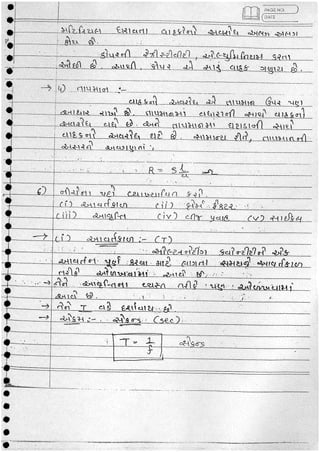 PAGE NO.
DATE
મટિરિયલ ધરાવતા વાહકોનો અવરોધ અલગ અલગ
હોય છે.
કોપરની રેઝીસ્ટીવીટી, એલ્યુમિનિયમ કરતા
ઓછી છે. આથી કોપર એ સારું વાહક ગણાય છે.
→ 4) તાપમાન :-
વાહકનો અવરોધ એ તાપમાન ઉપર પણ
આધાર રાખે છે. તાપમાનમાં વધારાની સાથે વાહકનો
અવરોધ વધે છે અને તાપમાનમાં ઘટાડાની સાથે
વાહકનો અવરોધ ઘટે છે. સામાન્ય રીતે, તાપમાનની
અસરને અવગણતાં :-
R = S l/a
6) નીચેના પદો વ્યાખ્યાયિત કરો
(i) આવર્તકાળ (ii) ફોર્મ ફેક્ટર
(iii) આવૃત્તિ (iv) વીજ પ્રવાહ (v) સાઈકલ
→ (i) આવર્તકાળ :- (T)
ઓલ્ટરનેટીંગ ક્વોન્ટીટીને એક
આવર્તન પૂર્ણ કરવા માટે લાગતા સમયને આવર્તકાળ
તરીકે ઓળખવામાં આવે છે.
→ તેને આવૃત્તિના વ્યસ્ત તરીકે પણ ઓળખવામાં
આવે છે.
→ તેને T વડે દર્શાવાય છે.
→ એકમ :- સેકન્ડ (sec)
T = 1/f સેકન્ડ